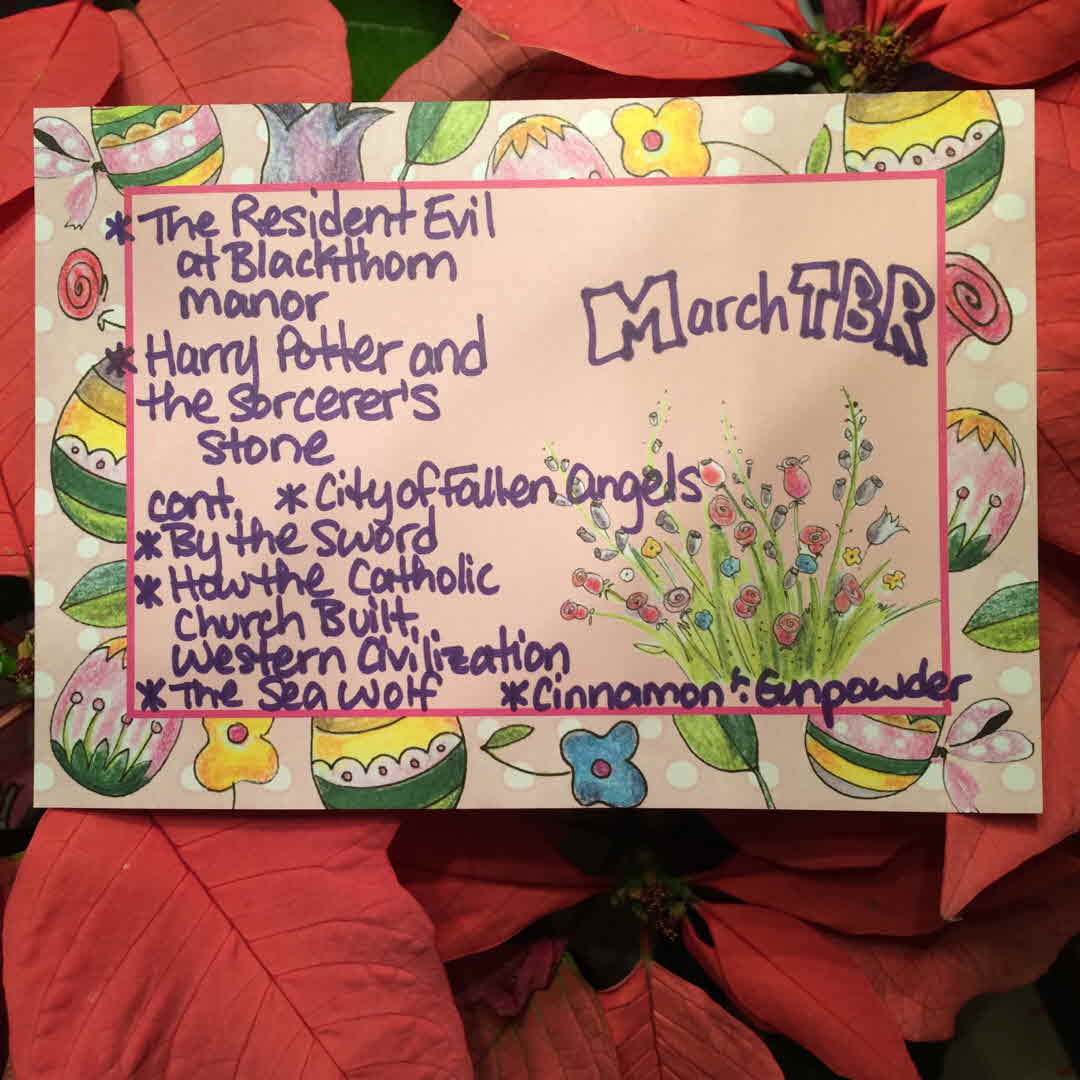 * The Resident Evil
at Blackthorn
manor
March TBR
* Harry Potter and
the sorcerer's
stone
cont. * City of Fallen Angels
* By the Sword
* How the Catholic
Church Built
Western Civilization
* The Sea Wolf * Cinnamon & Gunpowder